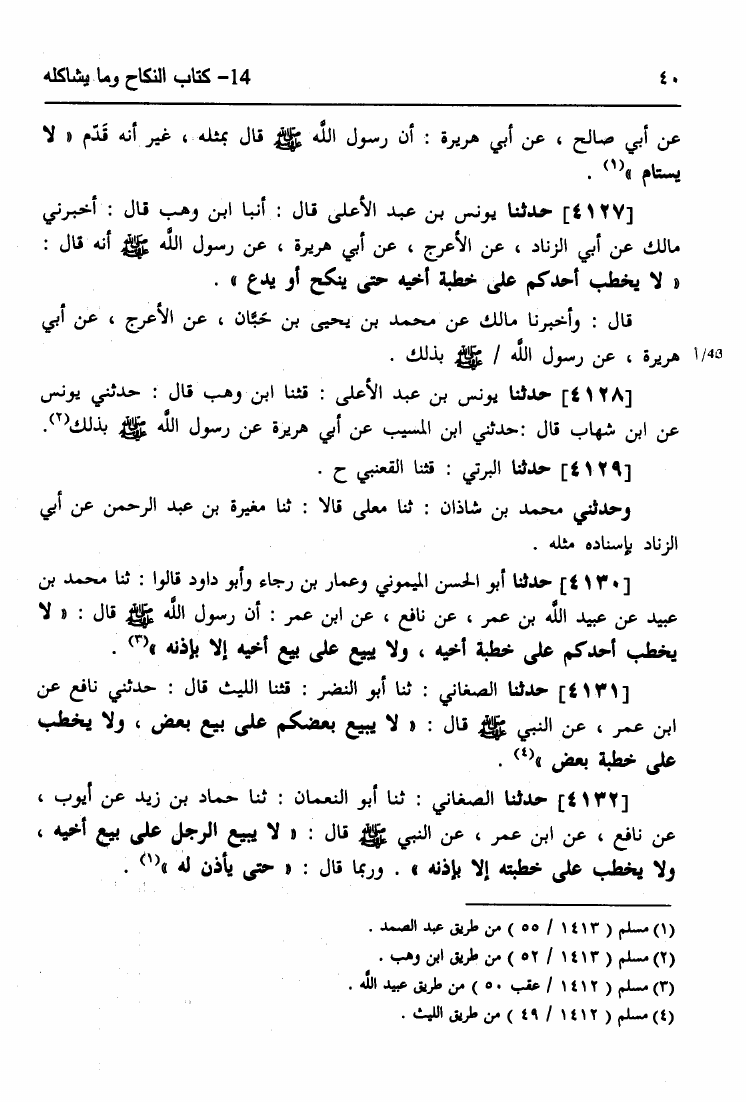 ٤٠ 14- كتاب النكاح وما يشاكله
عن أبي صالح ، عن أبي هريرة : أن رسول اللَّه ﷺ قال بمثله ، غير أنه قَدّم « لا
يستام »(١) .
[٤١٢٧] حدثنا يونس بن عبد الأعلى قال : أنبا ابن وهب قال : أخبرني
مالك عن أبي الزناد ، عن الأعرج ، عن أبي هريرة ، عن رسول اللَّه ﷺ أنه قال :
« لا يخطب أحدكم على خطبة أخيه حتى ينكح أو يدع » .
قال : وأخبرنا مالك عن محمد بن يحيى بن حَبَّان ، عن الأعرج ، عن أبي
هريرة ، عن رسول اللَّه / ﷺ بذلك . ١/43
[٤١٢٨] حدثنا يونس بن عبد الأعلى : قثنا ابن وهب قال : حدثني يونس
عن ابن شهاب قال :حدثني ابن المسيب عن أبي هريرة عن رسول اللَّه ﷺ بذلك(٢).
[٤١٢٩] حدثنا البرتي : قثنا القعنبي ح .
وحدثني محمد بن شاذان : ثنا معلى قالا : ثنا مغيرة بن عبد الرحمن عن أبي
الزناد بإسناده مثله .
[٤١٣٠] حدثنا أبو الحسن الميموني وعمار بن رجاء وأبو داود قالوا : ثنا محمد بن
عبيد عن عبيد اللَّه بن عمر ، عن نافع ، عن ابن عمر : أن رسول اللَّه ﷺ قال : « لا
يخطب أحدكم على خطبة أخيه ، ولا يبيع على بيع أخيه إلا بإذنه »(٣) .
[٤١٣١] حدثنا الصغاني : ثنا أبو النضر : قثنا الليث قال : حدثني نافع عن
ابن عمر ، عن النبي ﷺ قال : « لا يبيع بعضكم على بيع بعض ، ولا يخطب
على خطبة بعض »(٤) .
[٤١٣٢] حدثنا الصغاني : ثنا أبو النعمان : ثنا حماد بن زيد عن أيوب ،
عن نافع ، عن ابن عمر ، عن النبي ﷺ قال : « لا يبيع الرجل على بيع أخيه ،
ولا يخطب على خطبته إلا بإذنه » . وربما قال : « حتى يأذن له »(١) .
(١) مسلم ( ١٤١٣ / ٥٥ ) من طريق عبد الصمد .
(٢) مسلم ( ١٤١٣ / ٥٢ ) من طريق ابن وهب .
(٣) مسلم ( ١٤١٢ / عقب ٥٠ ) من طريق عبيد اللَّه .
(٤) مسلم ( ١٤١٢ / ٤٩ ) من طريق الليث .